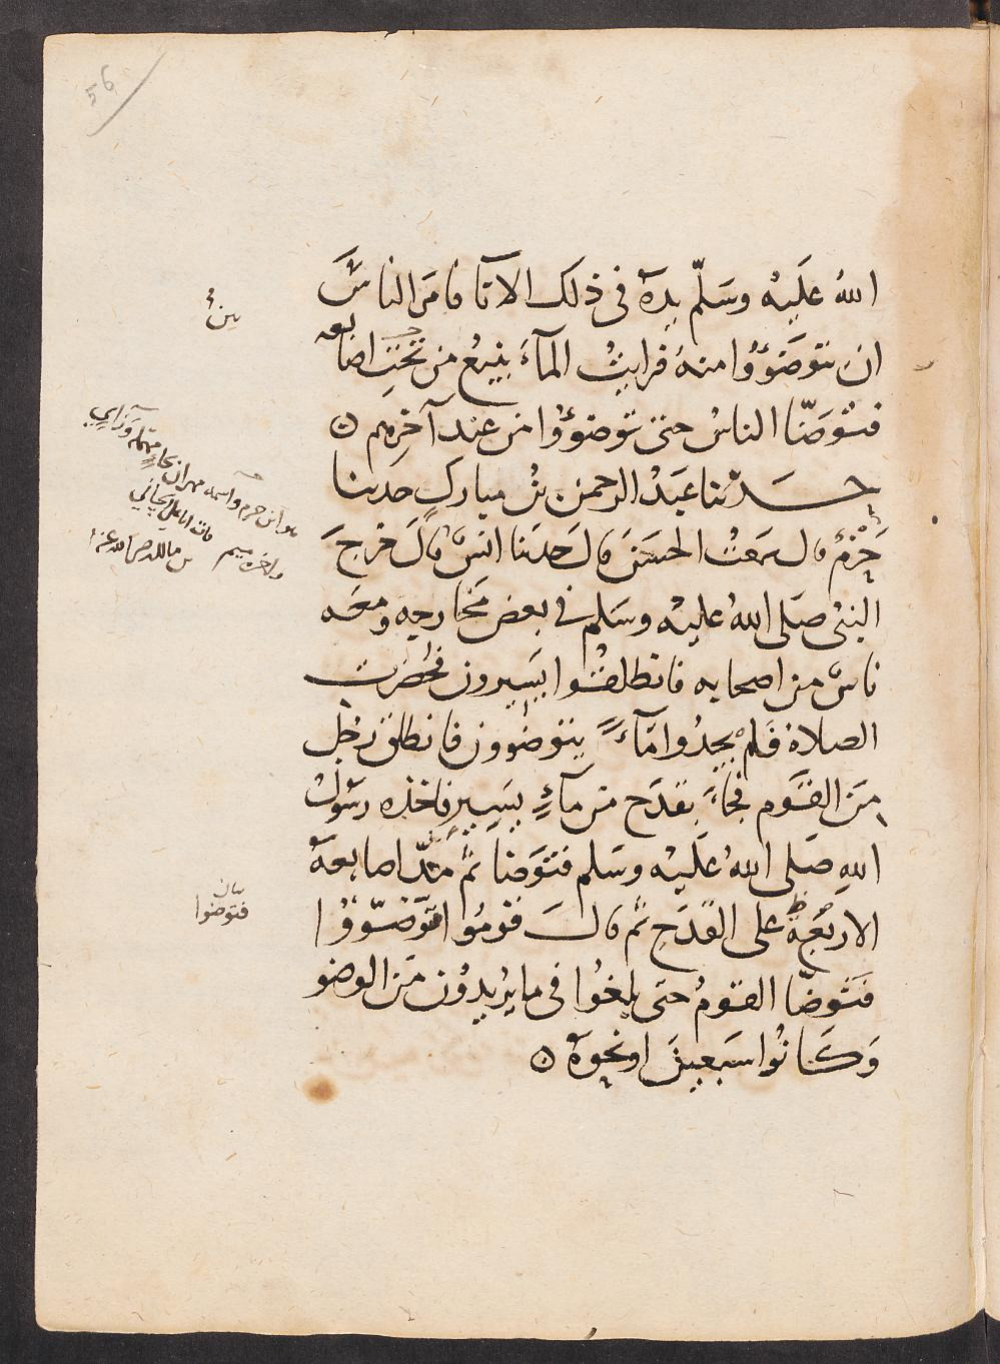 56
الله عَلَيْه وسَلّم يده في ذلك الاناء فامَر الناسَ
ان يتوَضَؤُوا منهُ فرايتُ المآءَ ينبعُ من تحتِ اصابعه
فتَوَضّأ الناسُ حتى توضؤُوا من عند آخرِهم
حَدثنا عَبدُ الرحمن بنُ مباركٍ حَدثنا
حَزْمٌ قال سَمعتُ الحسَنَ قالَ حَدثنا انسٌ قالَ خرَجَ
النبىُ صَلى اللهُ عليْه وسَلم في بعض مَخارجِه ومعَه
ناسٌ من اصحابه فانطلقُوا يَسيرون فحَضَرَت
الصلاة فَلم يجِدُوا مَآءً يتوضؤون فانطلقَ رَجُل
مِنَ القَوم فجَاءَ بقَدَح من مآءٍ يَسيرٍ فاخذه رسُولُ
اللهِ صَلى اللهُ عَليْه وسَلم فتوَضا ثم مَدّ اصابعهُ
الاربَعَة على القَدَحِ ثم قالَ قوْمُوا فتوَضّؤُوا
فَتَوضّا القومُ حتى بلغُوا في ما يُريدُون مِن الوضو
وَكَانُوا سَبعِينَ او نحوَهُ
من
هو ابن حزم واسمه مهران بحاء مهملة وزاي
فتوضوا